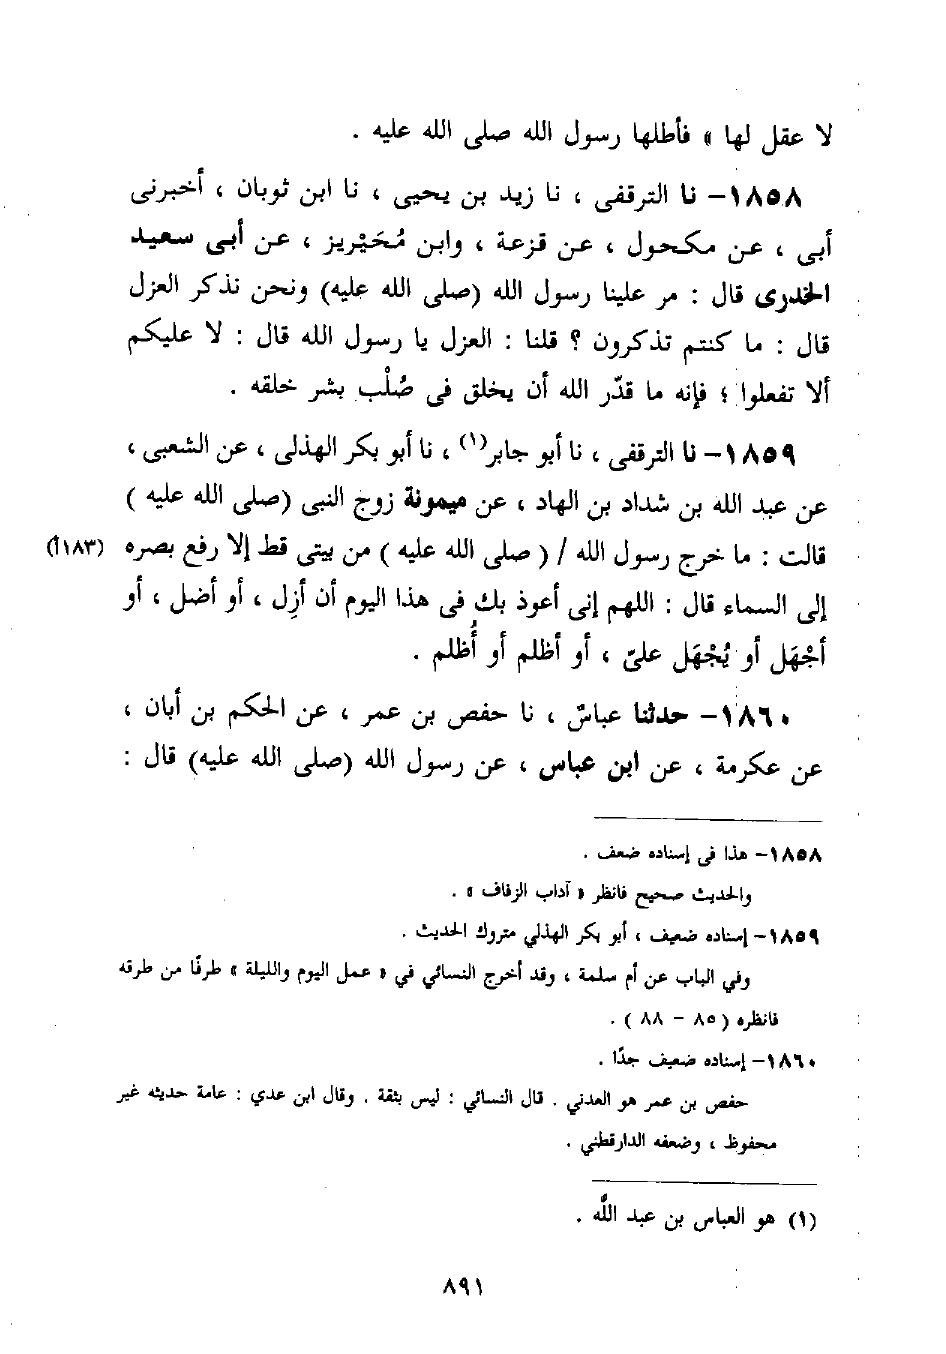 لا عقل لها » فأطلها رسول الله صلى الله عليه .
١٨٥٨- نا الترقفى ، نا زيد بن يحيى ، نا ابن ثوبان ، أخبرنى
أبى ، عن مكحول ، عن قزعة ، وابن مُحَيْريز ، عن أبى سعيد
الخدرى قال : مر علينا رسول الله (صلى الله عليه) ونحن نذكر العزل
قال : ما كنتم تذكرون ؟ قلنا : العزل يا رسول الله قال : لا عليكم
ألا تفعلوا ؛ فإنه ما قدّر الله أن يخلق فى صُلْب بشر خلقه .
١٨٥٩- نا الترقفى ، نا أبو جابر(١) ، نا أبو بكر الهذلى ، عن الشعبى ،
عن عبد الله بن شداد بن الهاد ، عن ميمونة زوج النبى (صلى الله عليه )
قالت : ما خرج رسول الله / ( صلى الله عليه ) من بيتى قط إلا رفع بصره (١٨٣أ)
إلى السماء قال : اللهم إنى أعوذ بك فى هذا اليوم أن أزِل ، أو أضل ، أو
أجْهَل أو يُجْهَل علىّ ، أو أظلم أو أُظلم .
١٨٦٠- حدثنا عباسٌ ، نا حفص بن عمر ، عن الحكم بن أبان ،
عن عكرمة ، عن ابن عباس ، عن رسول الله (صلى الله عليه) قال :
١٨٥٨- هذا فى إسناده ضعف .
والحديث صحيح فانظر « آداب الزفاف » .
١٨٥٩- إسناده ضعيف ، أبو بكر الهذلي متروك الحديث .
وفي الباب عن أم سلمة ، وقد أخرج النسائي في « عمل اليوم والليلة » طرفًا من طرقه
فانظره ( ٨٥ - ٨٨ ) .
١٨٦٠- إسناده ضعيف جدًا .
حفص بن عمر هو العدني . قال النسائي : ليس بثقة . وقال ابن عدي : عامة حديثه غير
محفوظ ، وضعفه الدارقطني .
(١) هو العباس بن عبد اللَّه .
٨٩١